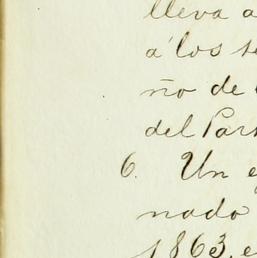 lleva a
á los se
ño de
del Par
6. Un e
nado
1863, e